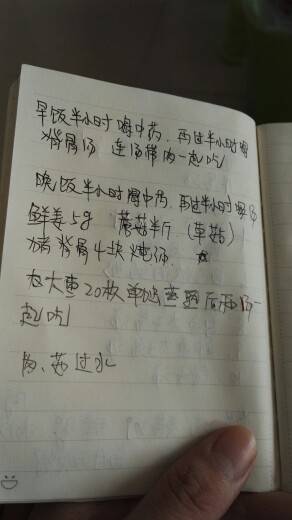 早饭半小时喝中药，再过半小时喝
猪脊骨汤 连汤带肉一起吃
晚饭半小时喝中药，再过半小时喝汤
鲜姜5g 蘑菇半斤（草菇）
猪脊骨4块炖汤
大枣20枚单独蒸 后和汤一
起吃
肉、菇过水